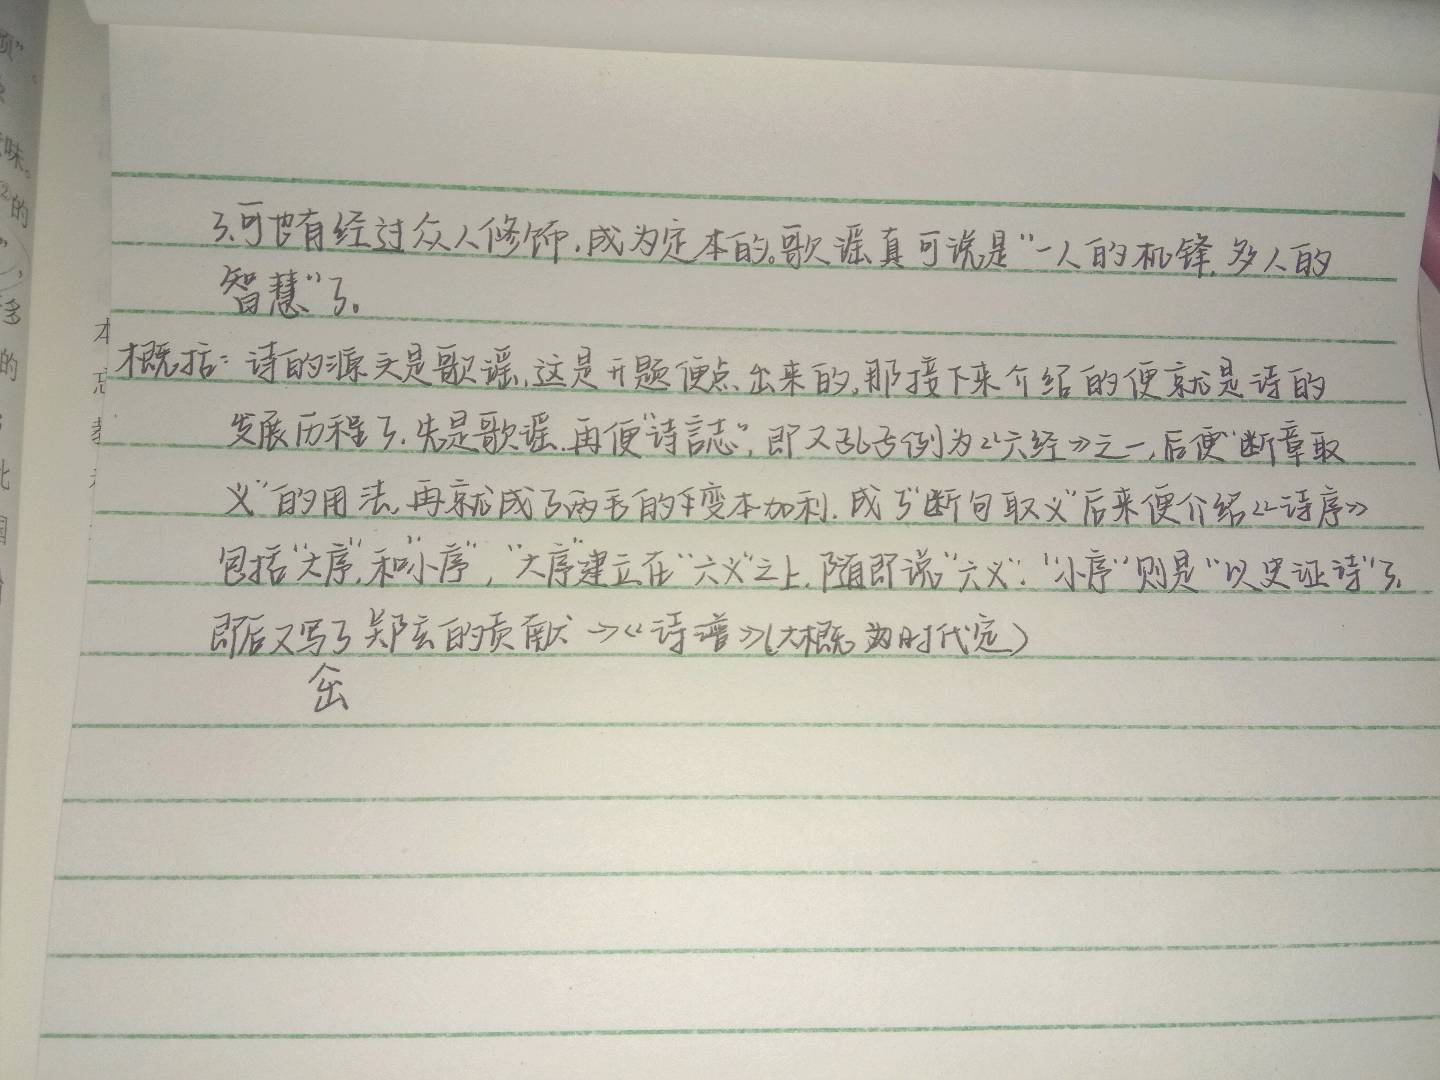 了,可也有经过众人修饰,成为定本的。歌谣真可说是“一人的机锋,多人的
智慧”了。
概括:诗的源头是歌谣,这是开题便点出来的,那接下来介绍的便就是诗的
发展历程了,先是歌谣,再便“诗言志”,即又孔子例为《六经》之一,后便“断章取
义”的用法,再就成了两毛的变本加利,成了“断句取义”后来便介绍《诗序》
包括“大序”和“小序”,“大序”建立在“六义”之上,随即说“六义”,“小序”则是“以史证诗”了,
即后又写了郑玄的贡献→《诗谱》(大概为时代定)
味。
②的
多
的